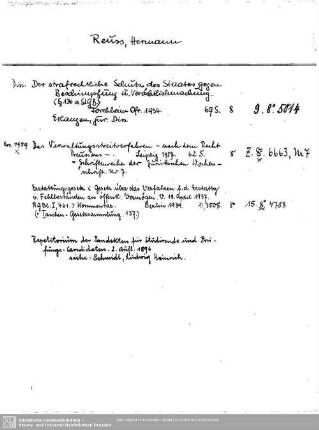 Reuss, Hermann
Diss. Der strafrechtliche Schutz des Staates gegen
Beschimpfung u. Verächtlichmachung
(§ 134 a StGB)
Forchheim Ofr. 1934 69 S. 8 9. 8° 5014
Erlangen, jur. Diss.
Das Verwaltungsstreitverfahren - nach dem Recht
Preussens - Leipzig 1937. 62 S. 8 Z. 8° 6663, Nr 7
Schriftenreihe der Juristischen Wochen-
schrift Nr 7.
Erstattungsgesetz (Gesetz über das Verfahren f. d. Erstattg
v. Fehlbeständen an öffentl. Vermögen, v. 18. April 1937.
RGBl. I, 461.) Kommentar. Berlin 1939. 8° 15. 8° 4753
(: Taschen-Gesetzsammlung. 177.)
Repetitorium der Pandekten für Studierende und Prü-
fungs-Candidaten. 2. Aufl. 1896
siehe: Schmidt, Ludwig Heinrich.